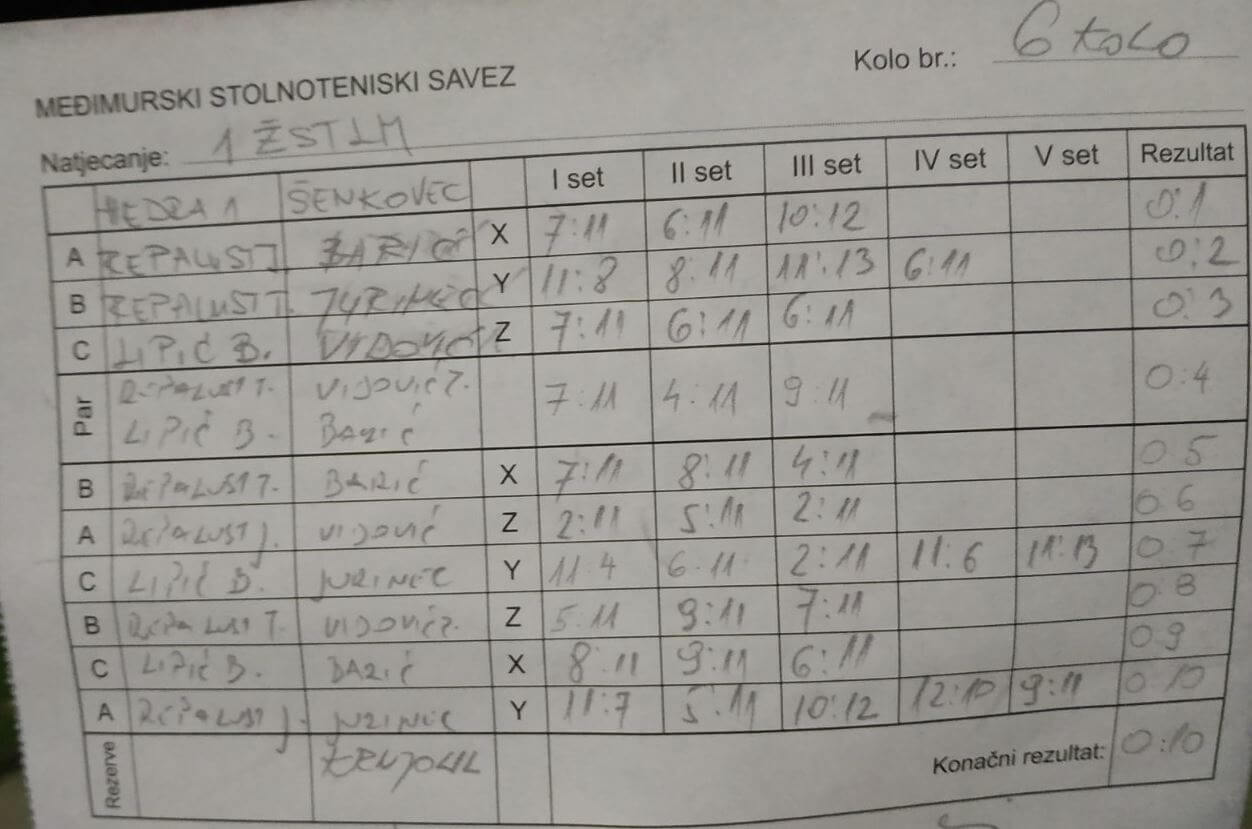 Kolo br.: 6 KOLO
MEĐIMURSKI STOLNOTENISKI SAVEZ
Natjecanje: 1 ŽSTLM
HEDRA 1 ŠENKOVEC I set II set III set IV set V set Rezultat
A REPALUST J. BARIĆ X 7:11 6:11 10:12 0:1
B REPALUST T. JURINEC Y 11:8 8:11 11:13 6:11 0:2
C LIPIĆ B. VIDOVIĆ Z 7:11 6:11 6:11 0:3
Par REPALUST T. VIDOVIĆ Z. 7:11 4:11 9:11 0:4
LIPIĆ B. BARIĆ
B REPALUST T. BARIĆ X 7:11 8:11 4:11 0 5
A REPALUST J. VIDOVIĆ Z 2:11 5:11 2:11 0 6
C LIPIĆ B. JURINEC Y 11:4 6:11 2:11 11:6 11:13 0 7
B REPALUST T. VIDOVIĆ Z. Z 5:11 9:11 7:11 0:8
C LIPIĆ B. BARIĆ X 8:11 9:11 6:11 0 9
A REPALUST J. JURINEC Y 11:7 5:11 10:12 12:10 9:11 0:10
Rezerve Konačni rezultat: 0:10